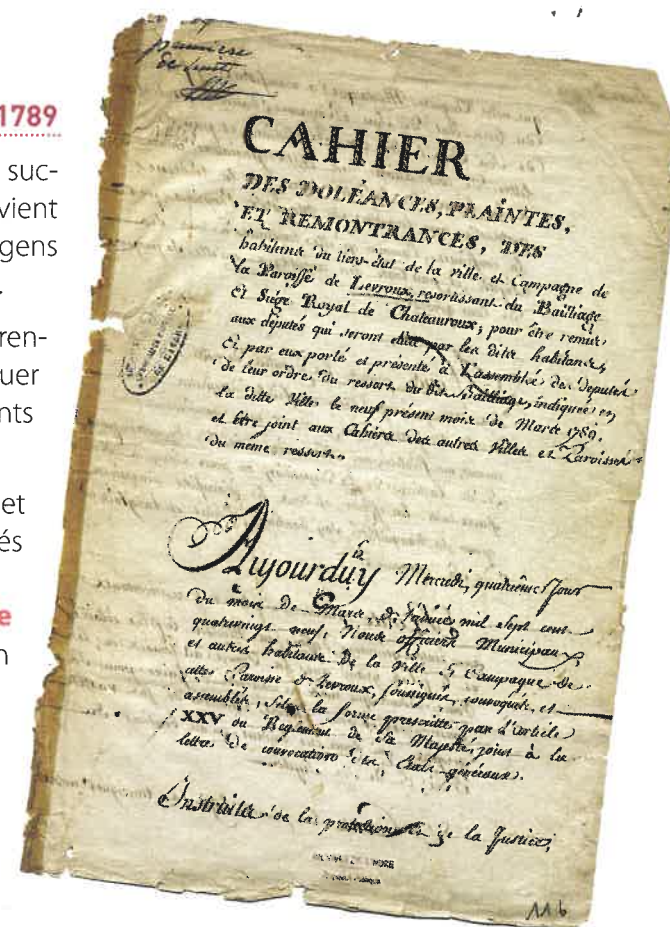 1789
suc-
vient
gens
ren-
uer
nts
et
és
e
n
première
CAHIER
DES DOLÉANCES, PLAINTES,
ET REMONTRANCES, DES
habitans du tiers-état de la ville et Campagne de
la Paroisse de Levroux, resortissant du Bailliage
Et Siége Royal de Chateauroux; pour être remis
aux députés qui seront élus par les dits habitans,
Et par eux porté et présenté à L'assemblée des députés
de leur ordre du ressort du dit Bailliage, indiquée en
la ditte Ville le neuf présent mois de Mars 1789.
et être joint aux Cahiers des autres Villes et Paroisses
du même ressort.
Aujourduy Mercredi, quatrième Jour
du mois de Mars, de l'année mil sept cent
quatrevingt neuf, Nous officiers Municipaux,
et autres habitans de la Ville & Campagne de
Paroisse de Levroux, soussignés, convoqués, et
assemblés, selon la forme prescritte par L'article
XXV du Reglement de Sa Majesté, joint à la
lettre de convocation des Etats-généraux.
Instruits de la protection et de la Justice,
116